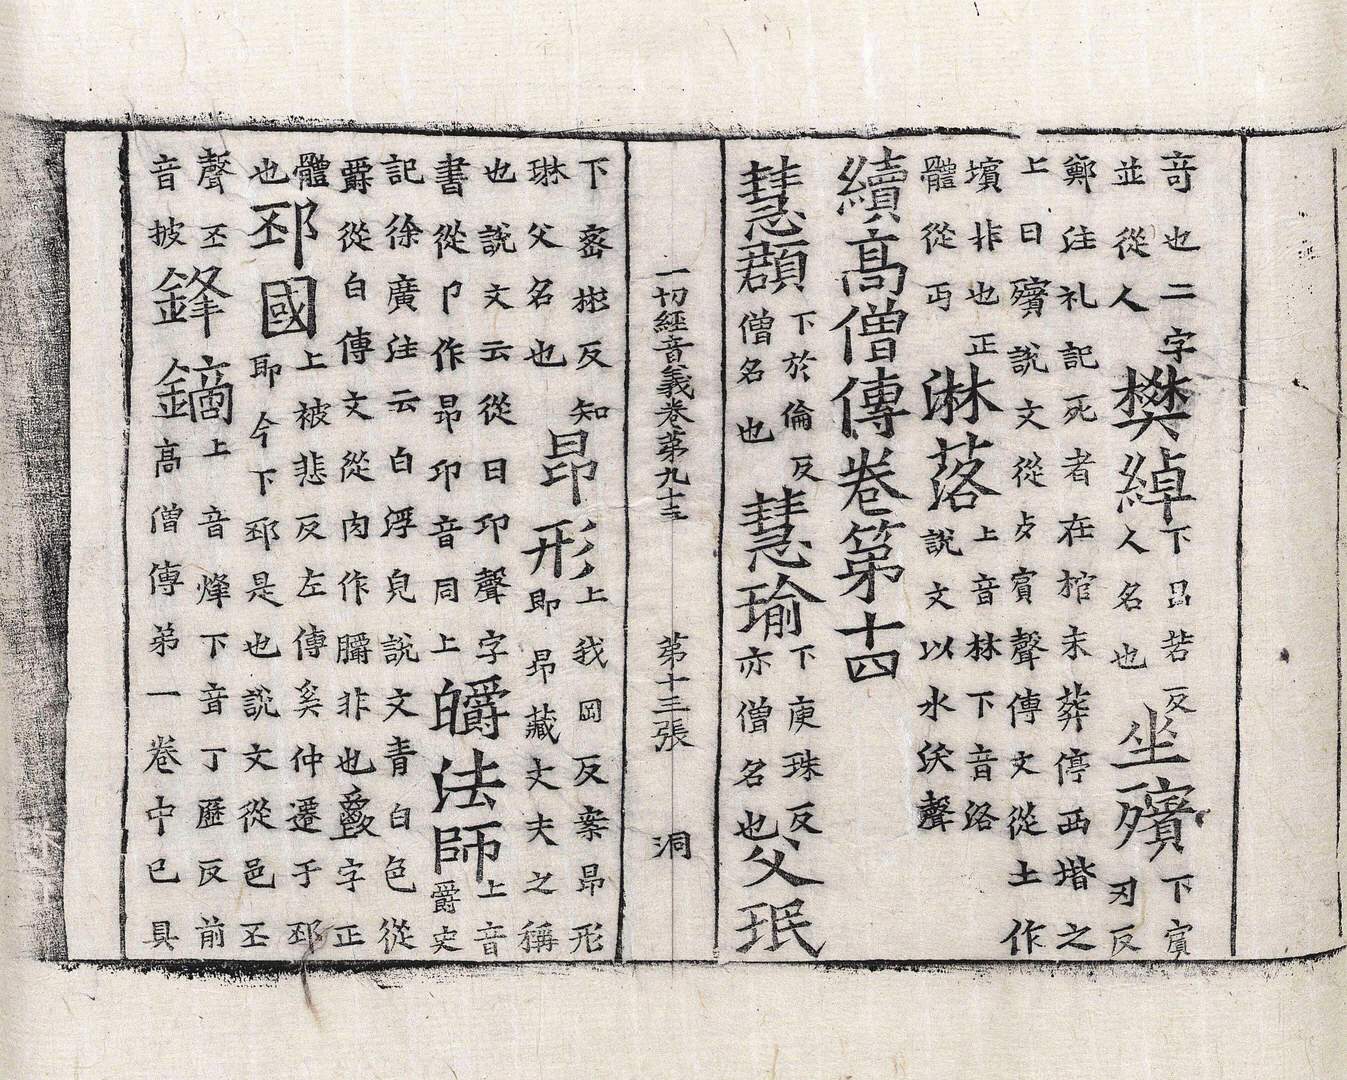 竒也二字
並從人
樊綽
下昌若反
人名也
坐殯
下賓
刃反
鄭注礼記死者在棺未葬停西堦之
上曰殯說文從歹賓聲傳文從土作
壙非也正
體從丏
淋落
上音林下音洛
說文以水沃聲
續高僧傳卷第十四
慧頵
下於倫反
僧名也
慧瑜
下庾珠反
亦僧名也
父珉
一切經音義卷第九十三 第十三張 洞
下密彬反知
琳父名也
昂形
上我罡反案昂形
即昂藏丈夫之稱
也說文云從日卬聲字
書從卩作昂卬音同上
皭法師
上音
爵史
記徐廣注云白浮皃說文青白色從
爵從白傳文從肉作臅非也爵字正
體
也
邳國
上被悲反左傳奚仲遷于邳
耶今下邳是也說文從邑丕
聲丕
音披
鋒鏑
上音烽下音丁歷反前
高僧傳第一卷中已具